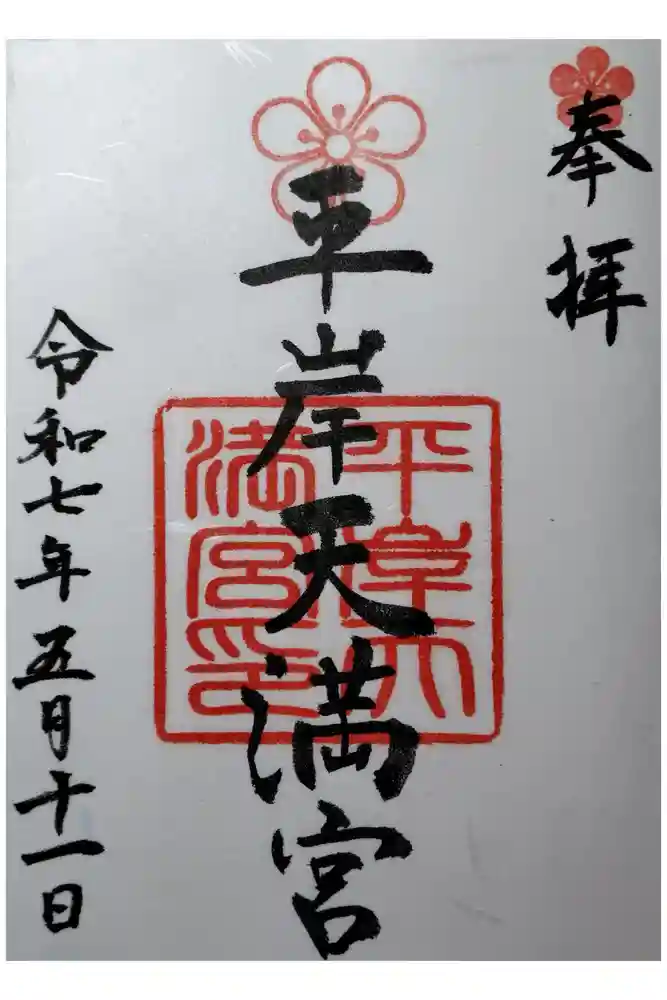 奉拝
平岸天満宮
平岸天
満宮印
令和七年五月十一日